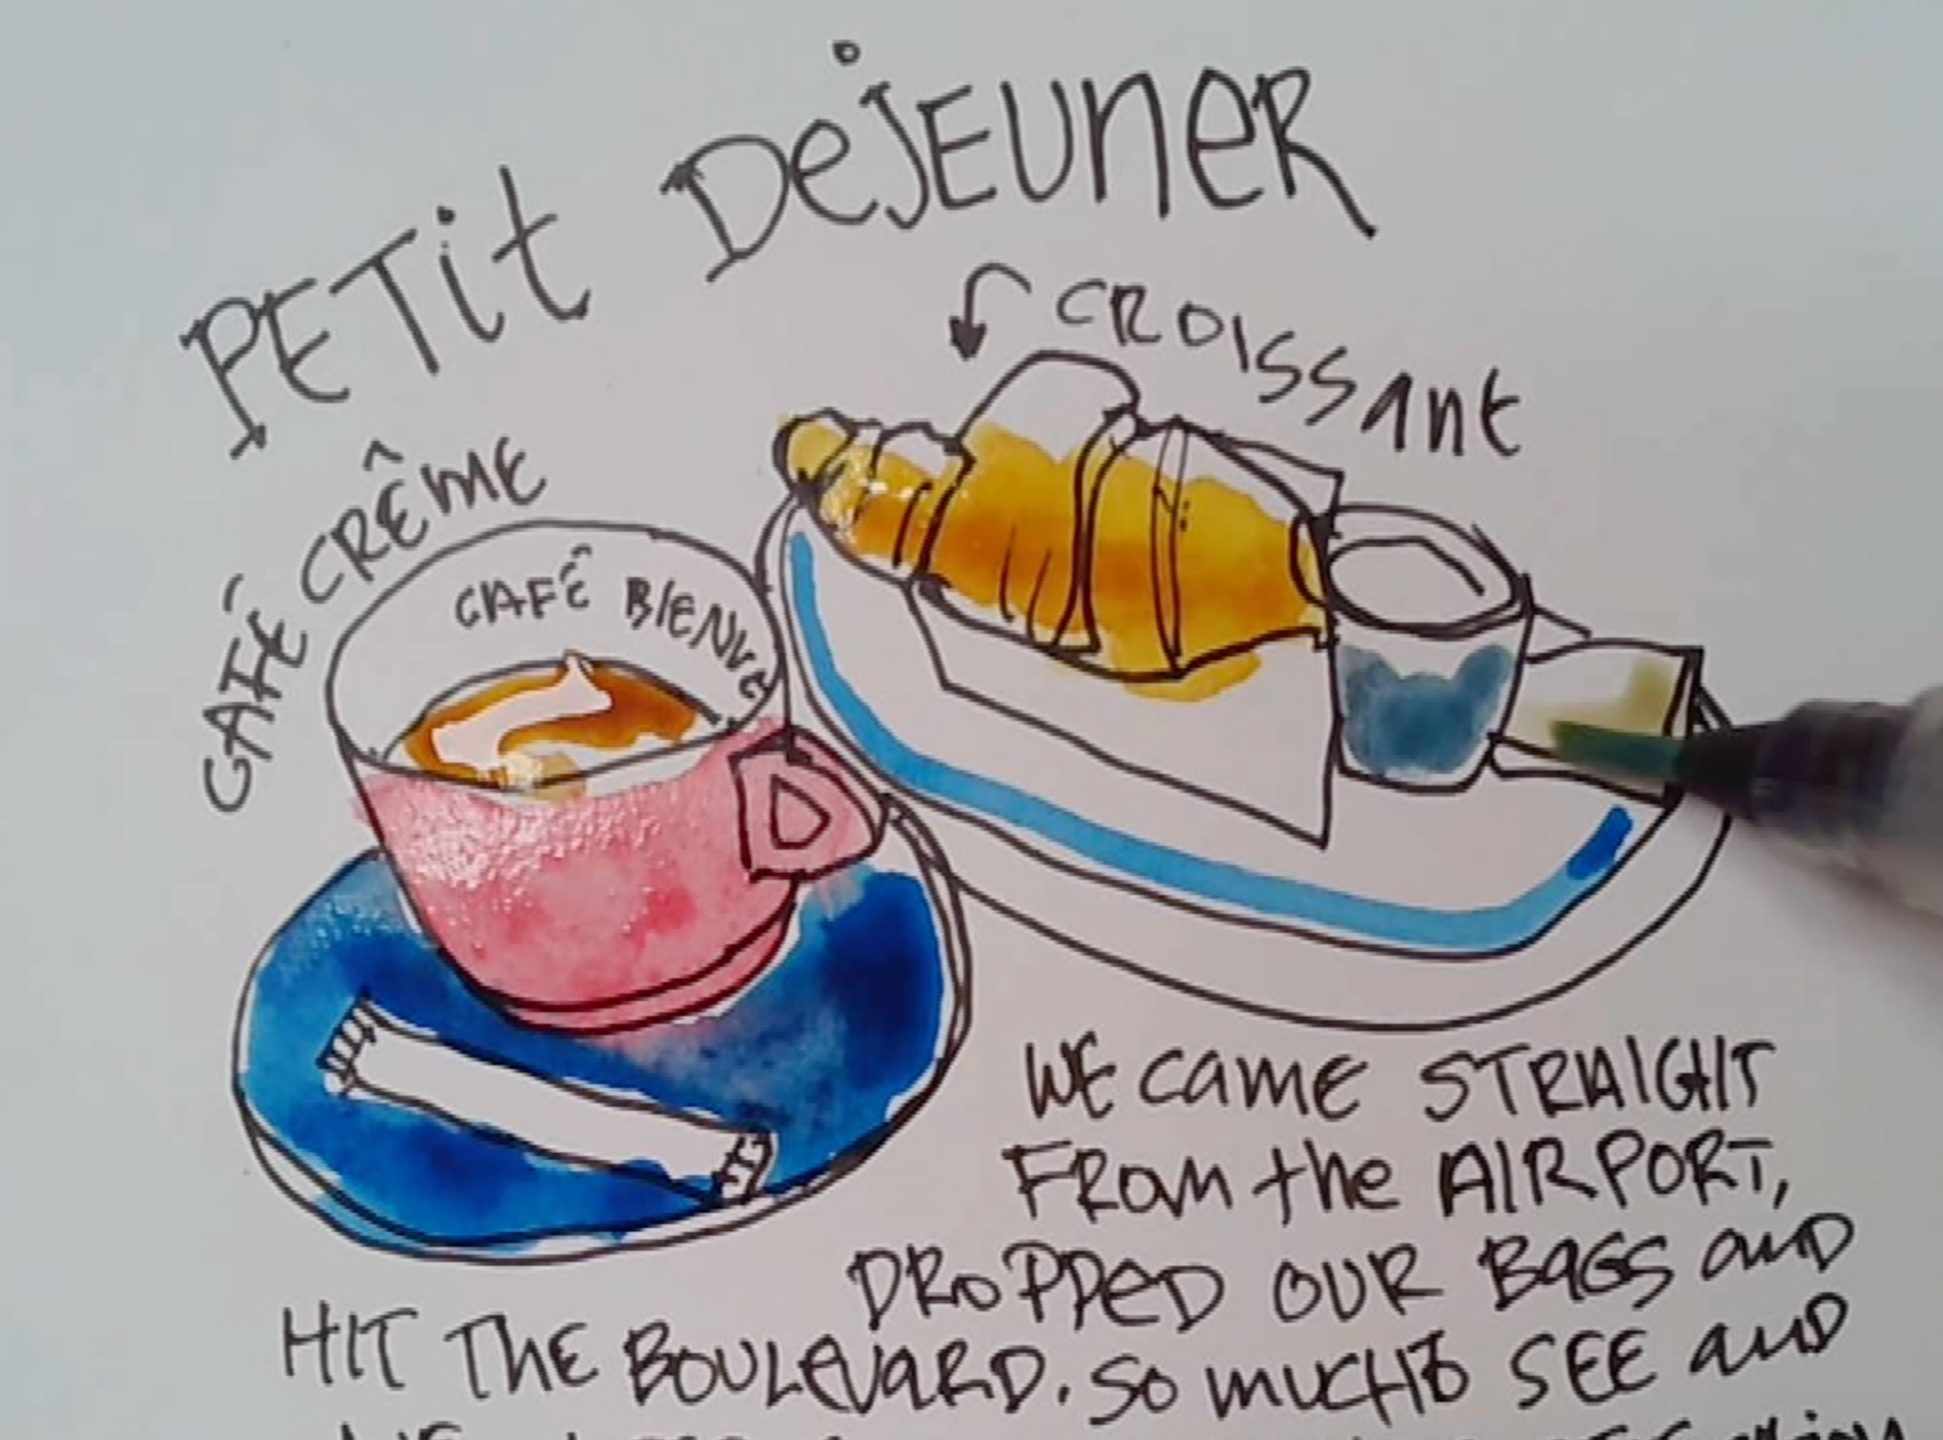 PETiT DejEUneR
CROISSANt
CAFÉ CRÊME
CAFÊ BIENVE
WE CAME STRAIGHT
FROM the AIRPORT,
DROPPED OUR BAGS AND
HIT THE BOULEVARD. SO MUCH TO SEE AND